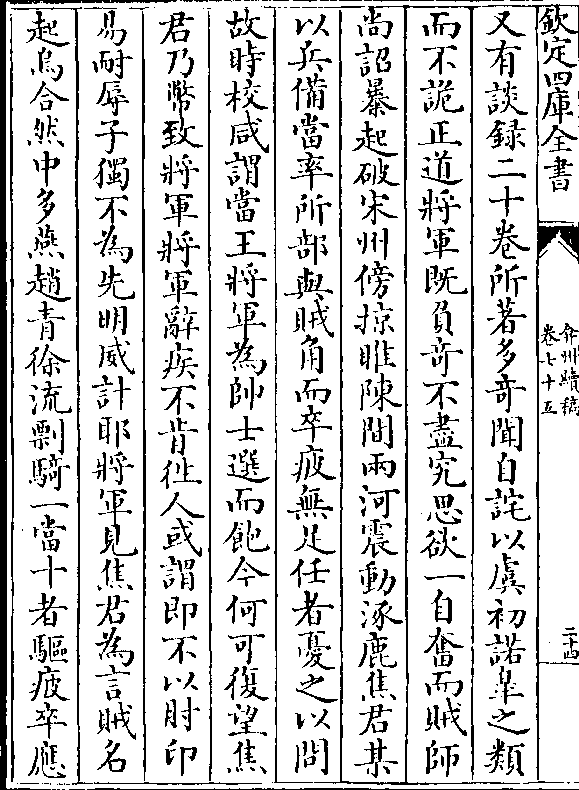 欽定四庫全書
弇州續稿
卷七十五
二十四
又有談録二十卷所著多奇聞自詫以虞初諾臯之類
而不詭正道將軍既負奇不盡究思欲一自奮而賊師
尚詔暴起破宋州傍掠睢陳間兩河震動涿鹿焦君某
以兵備當率所部與賊角而卒疲無足任者憂之以問
故時校咸謂當王將軍為帥士選而飽今何可復望焦
君乃幣致將軍將軍辭疾不肯徃人或謂即不以肘印
易耐辱子獨不為先明威計耶將軍見焦君為言賊名
起烏合然中多燕趙青徐流剽騎一當十者驅疲卒應